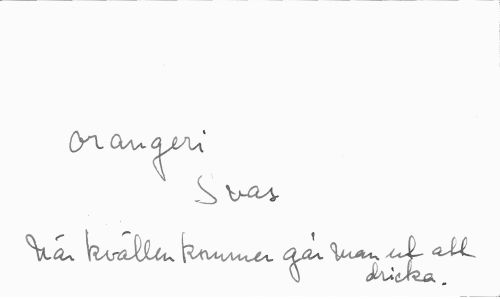 orangeri
Svas
När kvällen kommer går man ut att
dricka.